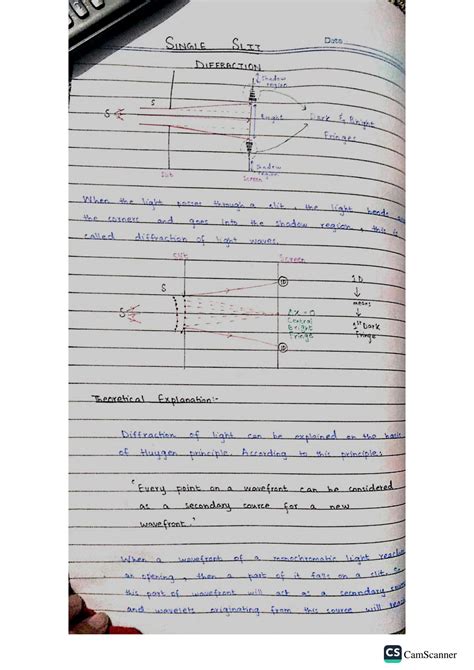 SINGLE SLIT
Date
DIFFRACTION
Shadow
region
S
S
Bright
Dark & Bright
Fringes
Shadow
region
Slit
Screen
When the light passes through a slit, the light bends
the corners and goes into the shadow region, this is
called diffraction of light waves.
Slit
Screen
S
S
1D
1D
means
1st Dark
Fringe
ΔX = 0
Central
Bright
Fringe
1D
Theoretical Explanation:-
Diffraction of light can be explained on the basis
of Huygen principle. According to this principle;
"Every point on a wavefront can be considered
as a secondary source for a new
wavefront."
When a wavefront of a monochromatic light
an opening, then a part of it falls on a slit,
this part of wavefront will act as a secondary
and wavelets originating from this source will
CS CamScanner